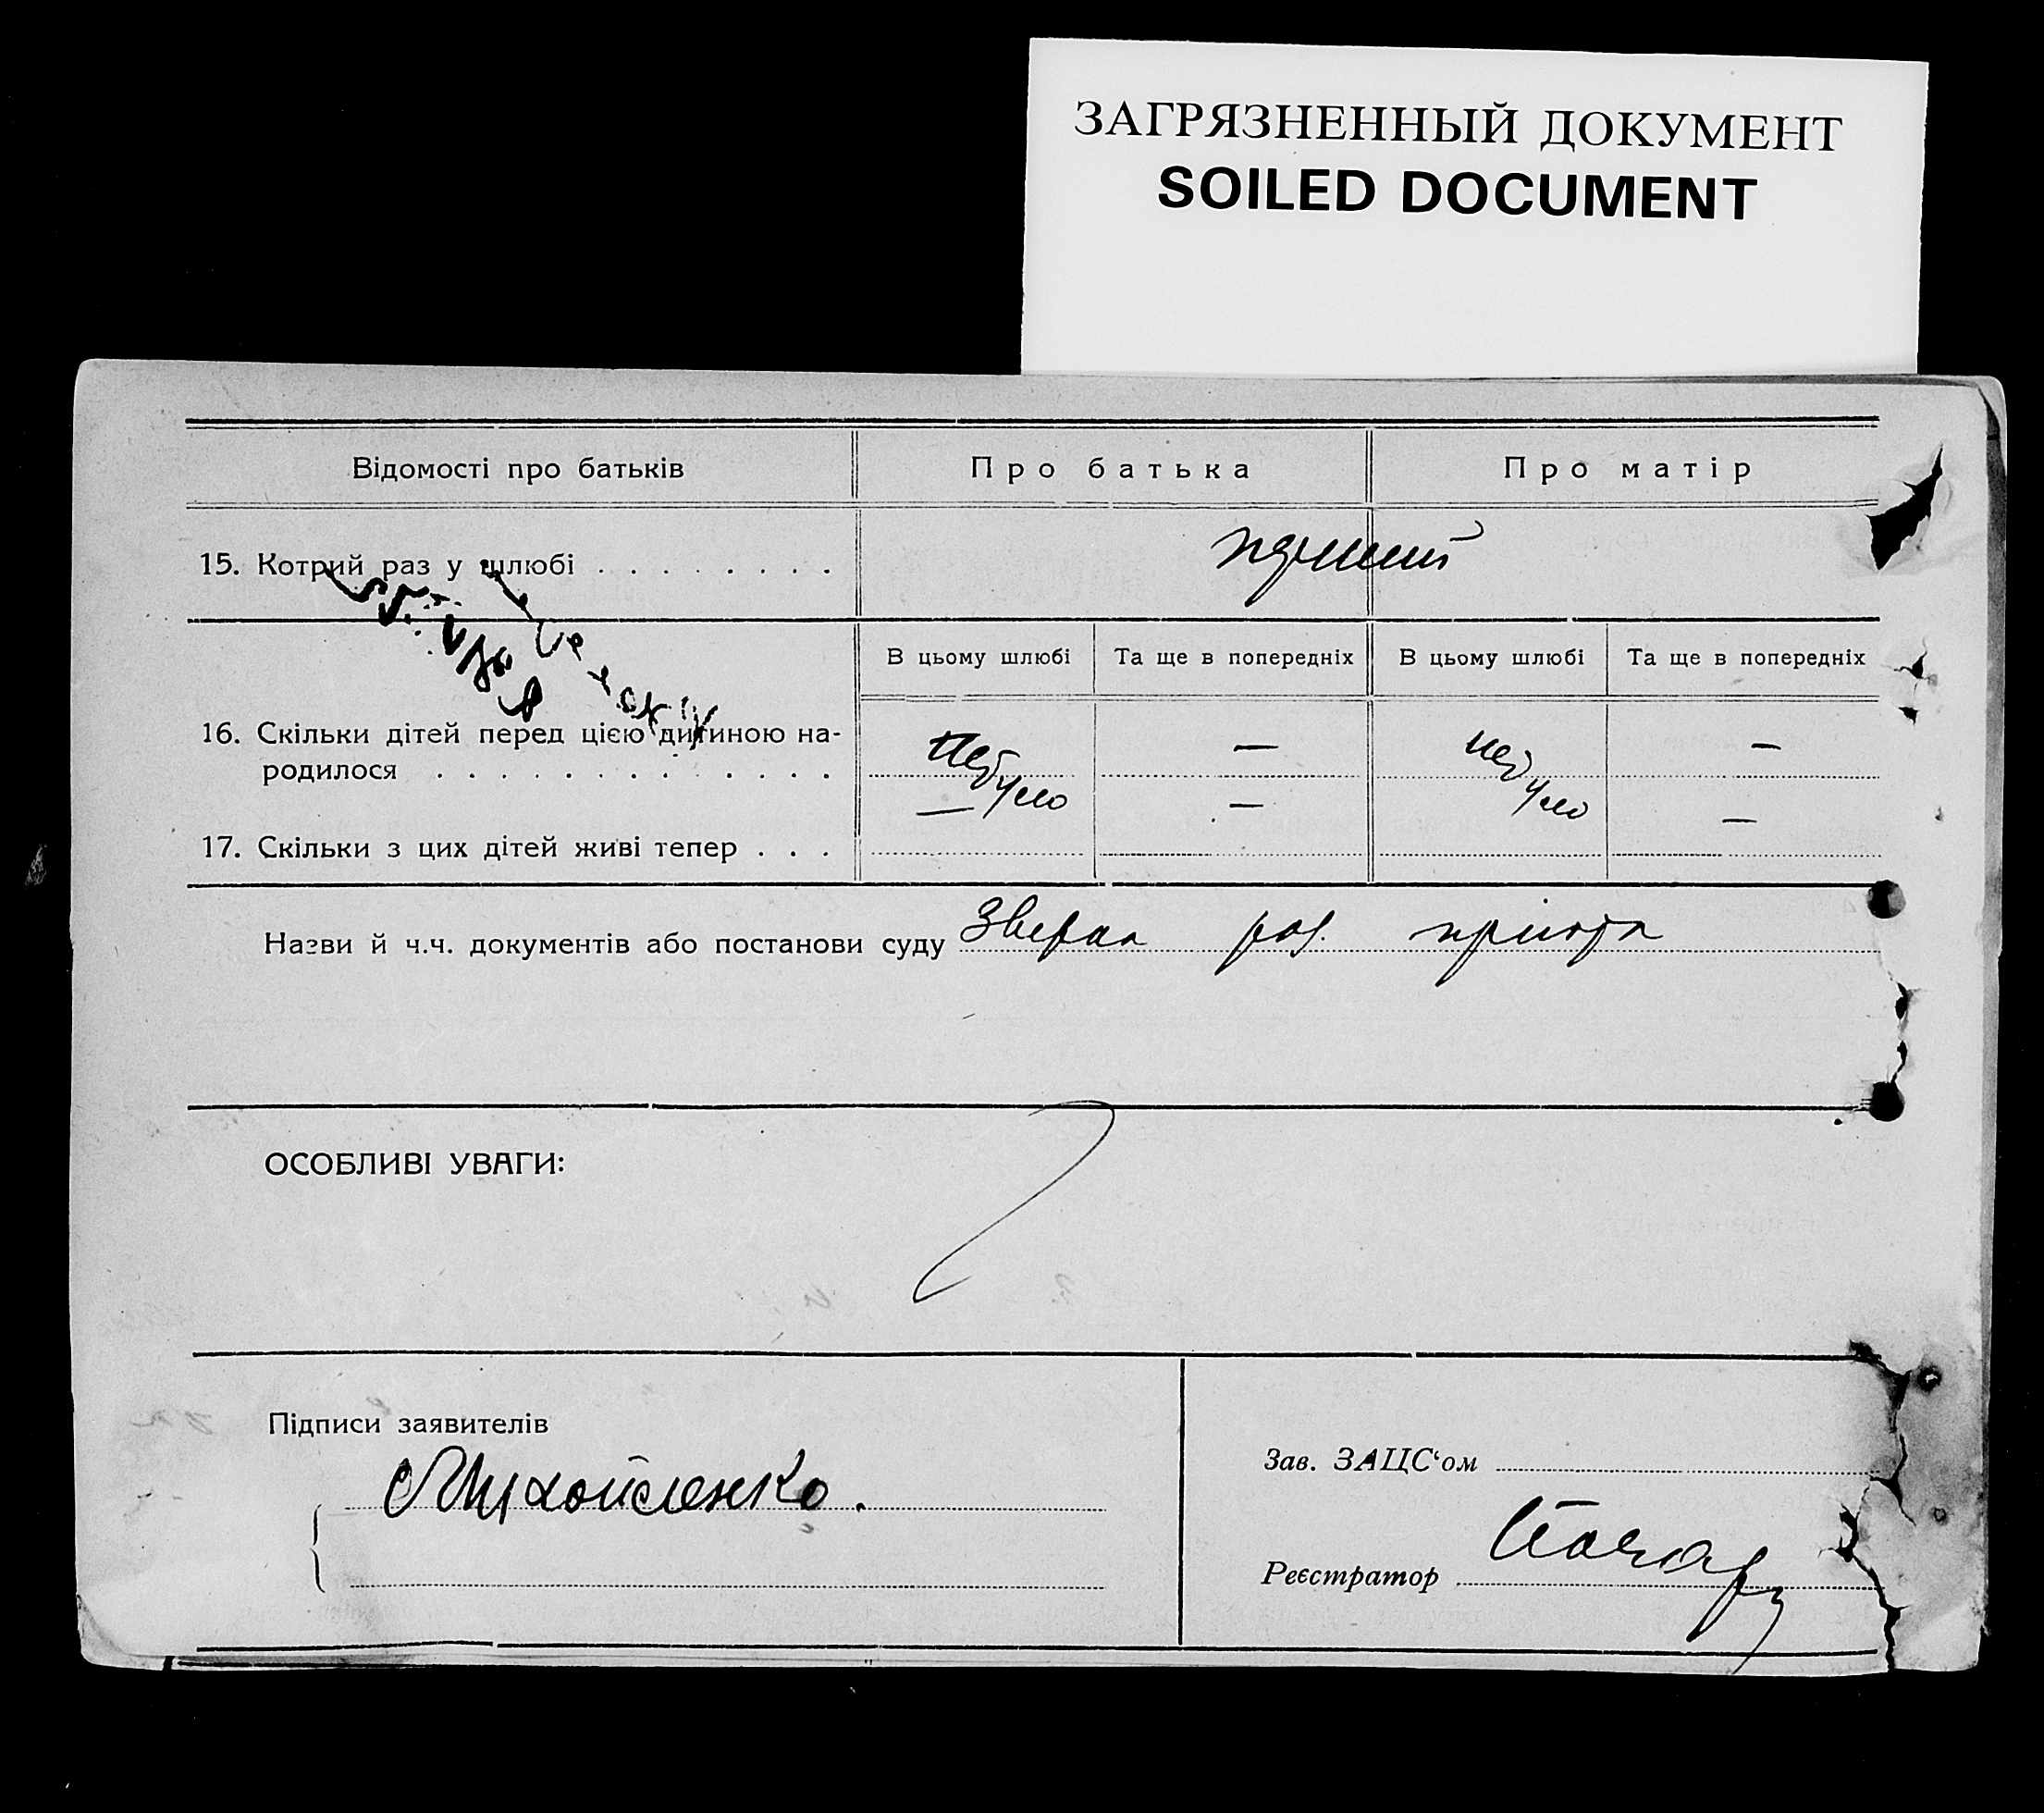 ЗАГРЯЗНЕННЫЙ ДОКУМЕНТ
SOILED DOCUMENT
Відомості про батьків
Про батька
Про матір
15. Котрий раз у шлюбі . . . . . . . . .
В цьому шлюбі
Та ще в попередніх
В цьому шлюбі
Та ще в попередніх
16. Скільки дітей перед цією дитиною на-
родилося . . . . . . . . . . . . .
небуло
—
небуло
—
—
—
—
17. Скільки з цих дітей живі тепер . . .
Назви й ч.ч. документів або постанови суду
ОСОБЛИВІ УВАГИ:
Підписи заявителів
Михайленко.
Зав. ЗАЦС‘ом
Реєстратор